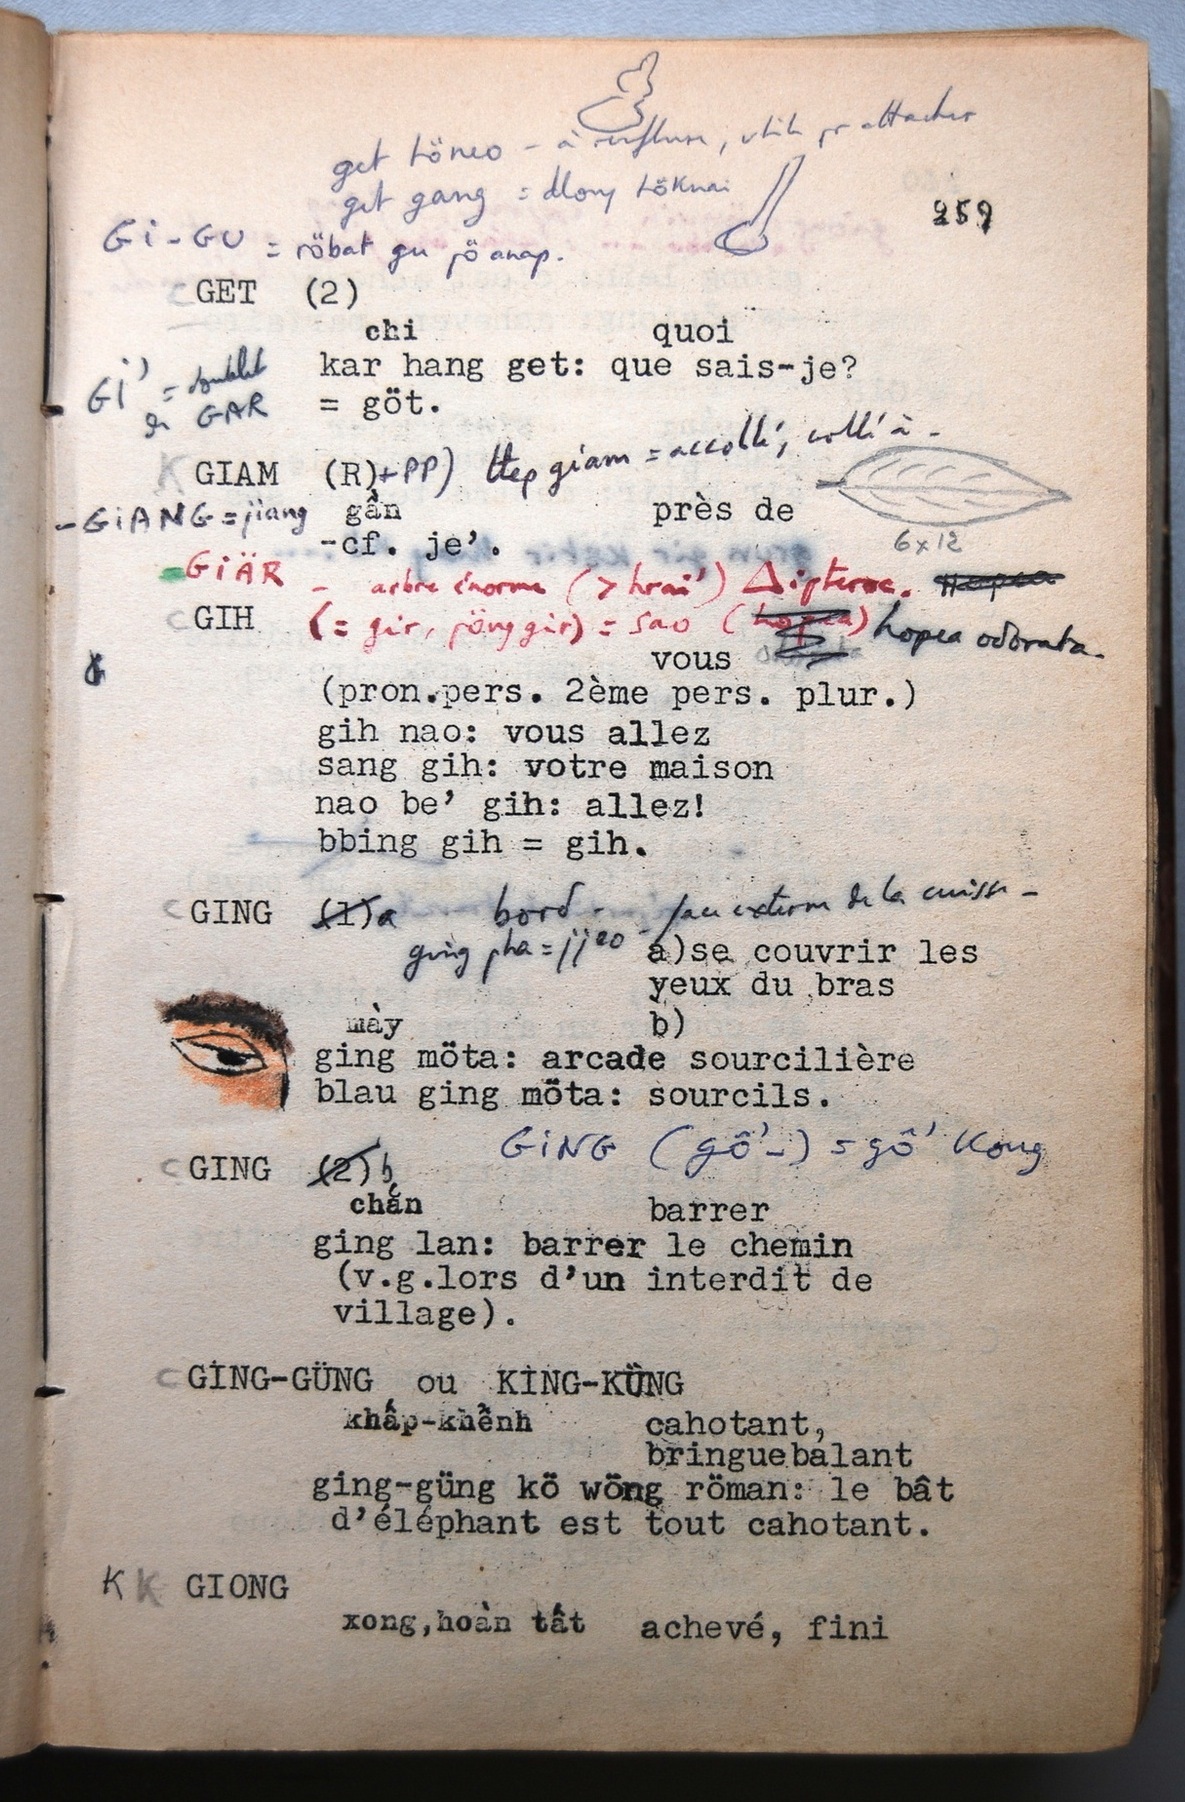 get töneo - à renflure, utile pr attacher
get gang = dlong töknai
259
Gi-GU = röbat gu pö anap.
C GET (2)
chi quoi
kar hang get: que sais-je?
GI' = doublet
= göt.
de GAR
K GIAM (R)+PP) ttep giam = accollé, collé à -
-GiANG = jiang gần près de
-cf. je’.
6x12
-GiÄR - arbre énorme (> hrai') Dipterac.
C GIH (= gir, pöng gir) = sao (hopea) hopea odorata.
vous
(pron.pers. 2ème pers. plur.)
gih nao: vous allez
sang gih: votre maison
nao be’ gih: allez!
bbing gih = gih.
C GING (1)a bord - face externe de la cuisse -
ging pha = jjeo
a)se couvrir les
yeux du bras
mày b)
ging möta: arcade sourcilière
blau ging möta: sourcils.
GiNG (gô'-) = gô' Kong
C GING (2)b
chắn barrer
ging lan: barrer le chemin
(v.g.lors d’un interdit de
village).
C GING-GÜNG ou KING-KÜNG
khấp-khềnh cahotant,
bringuebalant
ging-güng kö wöng röman: le bât
d’éléphant est tout cahotant.
K K GIONG
xong,hoàn tất achevé, fini